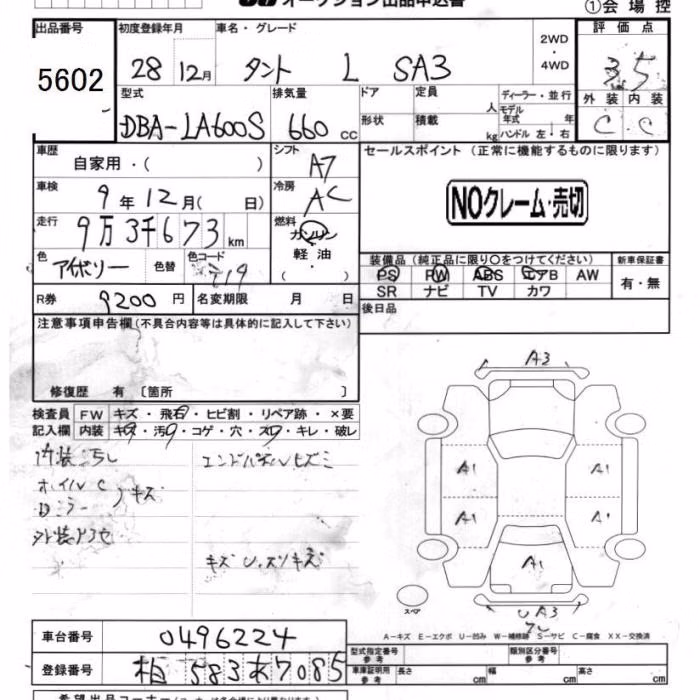 オークション出品申込書
①会場控
出品番号 初度登録年月 車名・グレード 2WD 評価点
5602 28 12月 タント L SA3 ・ 4WD 3.5
型式 排気量 ドア 定員 人 ディーラー・並行 外装 内装
DBA-LA600S 660 cc 形状 積載 kg モデル年式 年 ハンドル 左・右 C C
車歴 シフト セールスポイント (正常に機能するものに限ります)
自家用・( ) A7
車検 冷房
9年12月( 日) AC NOクレーム・売切
走行 燃料
9万3千673km ガソリン
色 色替 色コード 軽油 装備品 (純正品に限り○をつけてください) 新車保証書
アイボリー T19 ・ ( ) PS PW ABS エアB AW 有・無
SR ナビ TV カワ
R券 9200円 名変期限 月 日 後日品
注意事項申告欄(不具合内容等は具体的に記入して下さい)
修復歴 有 〔箇所 〕
検査員 FW キズ・飛石・ヒビ割・リペア跡・×要
記入欄 内装 キズ・汚れ・コゲ・穴・スレ・キレ・破レ
エンドパネルヒズミ
ホイルC
キズ
キズ U.スリキズ
A3
A1 A1
A1 A1
A1
U A3
スペア
A-キズ E-エクボ U-凹み W-補修跡 S-サビ C-腐食 XX-交換済
車台番号 0496224
型式指定番号 参考 類別区分番号 参考
登録番号 柏 583 あ 7085
車庫証明用 参考 長さ cm 幅 cm 高さ cm